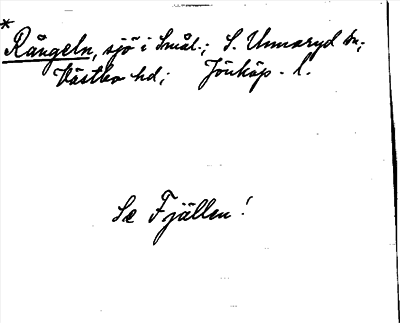 *
Rångeln, sjö i Smål.; S. Unnaryd sn;
Västbo hd; Jönköp. l.
Se Fjällen!